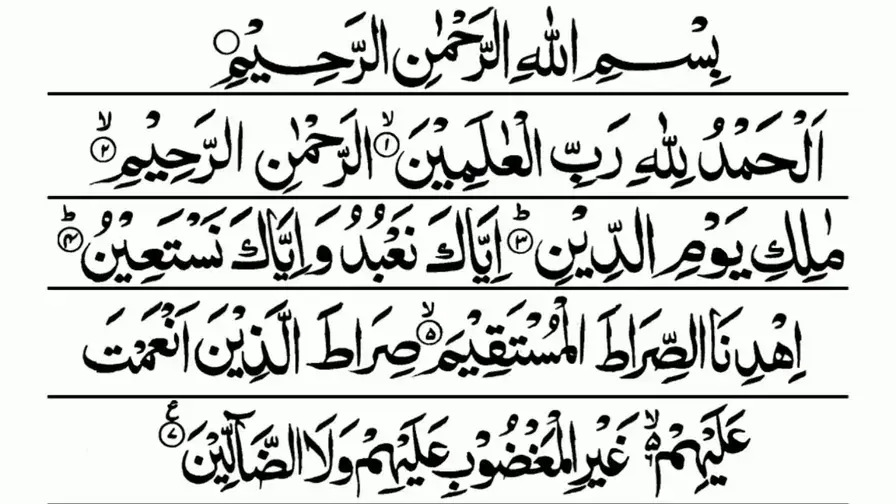 بِسْمِ اللهِ الرَّحْمٰنِ الرَّحِيْمِ ۝
اَلْحَمْدُ لِلهِ رَبِّ الْعٰلَمِيْنَ ۙ﴿۱﴾ الرَّحْمٰنِ الرَّحِيْمِ ۙ﴿۲﴾
مٰلِكِ يَوْمِ الدِّيْنِ ؕ﴿۳﴾ اِيَّاكَ نَعْبُدُ وَاِيَّاكَ نَسْتَعِيْنُ ؕ﴿۴﴾
اِهْدِنَا الصِّرَاطَ الْمُسْتَقِيْمَ ۙ﴿۵﴾ صِرَاطَ الَّذِيْنَ اَنْعَمْتَ
عَلَيْهِمْ ۙ۬ غَيْرِ الْمَغْضُوْبِ عَلَيْهِمْ وَلَا الضَّآلِّيْنَ ﴿۷﴾ ع